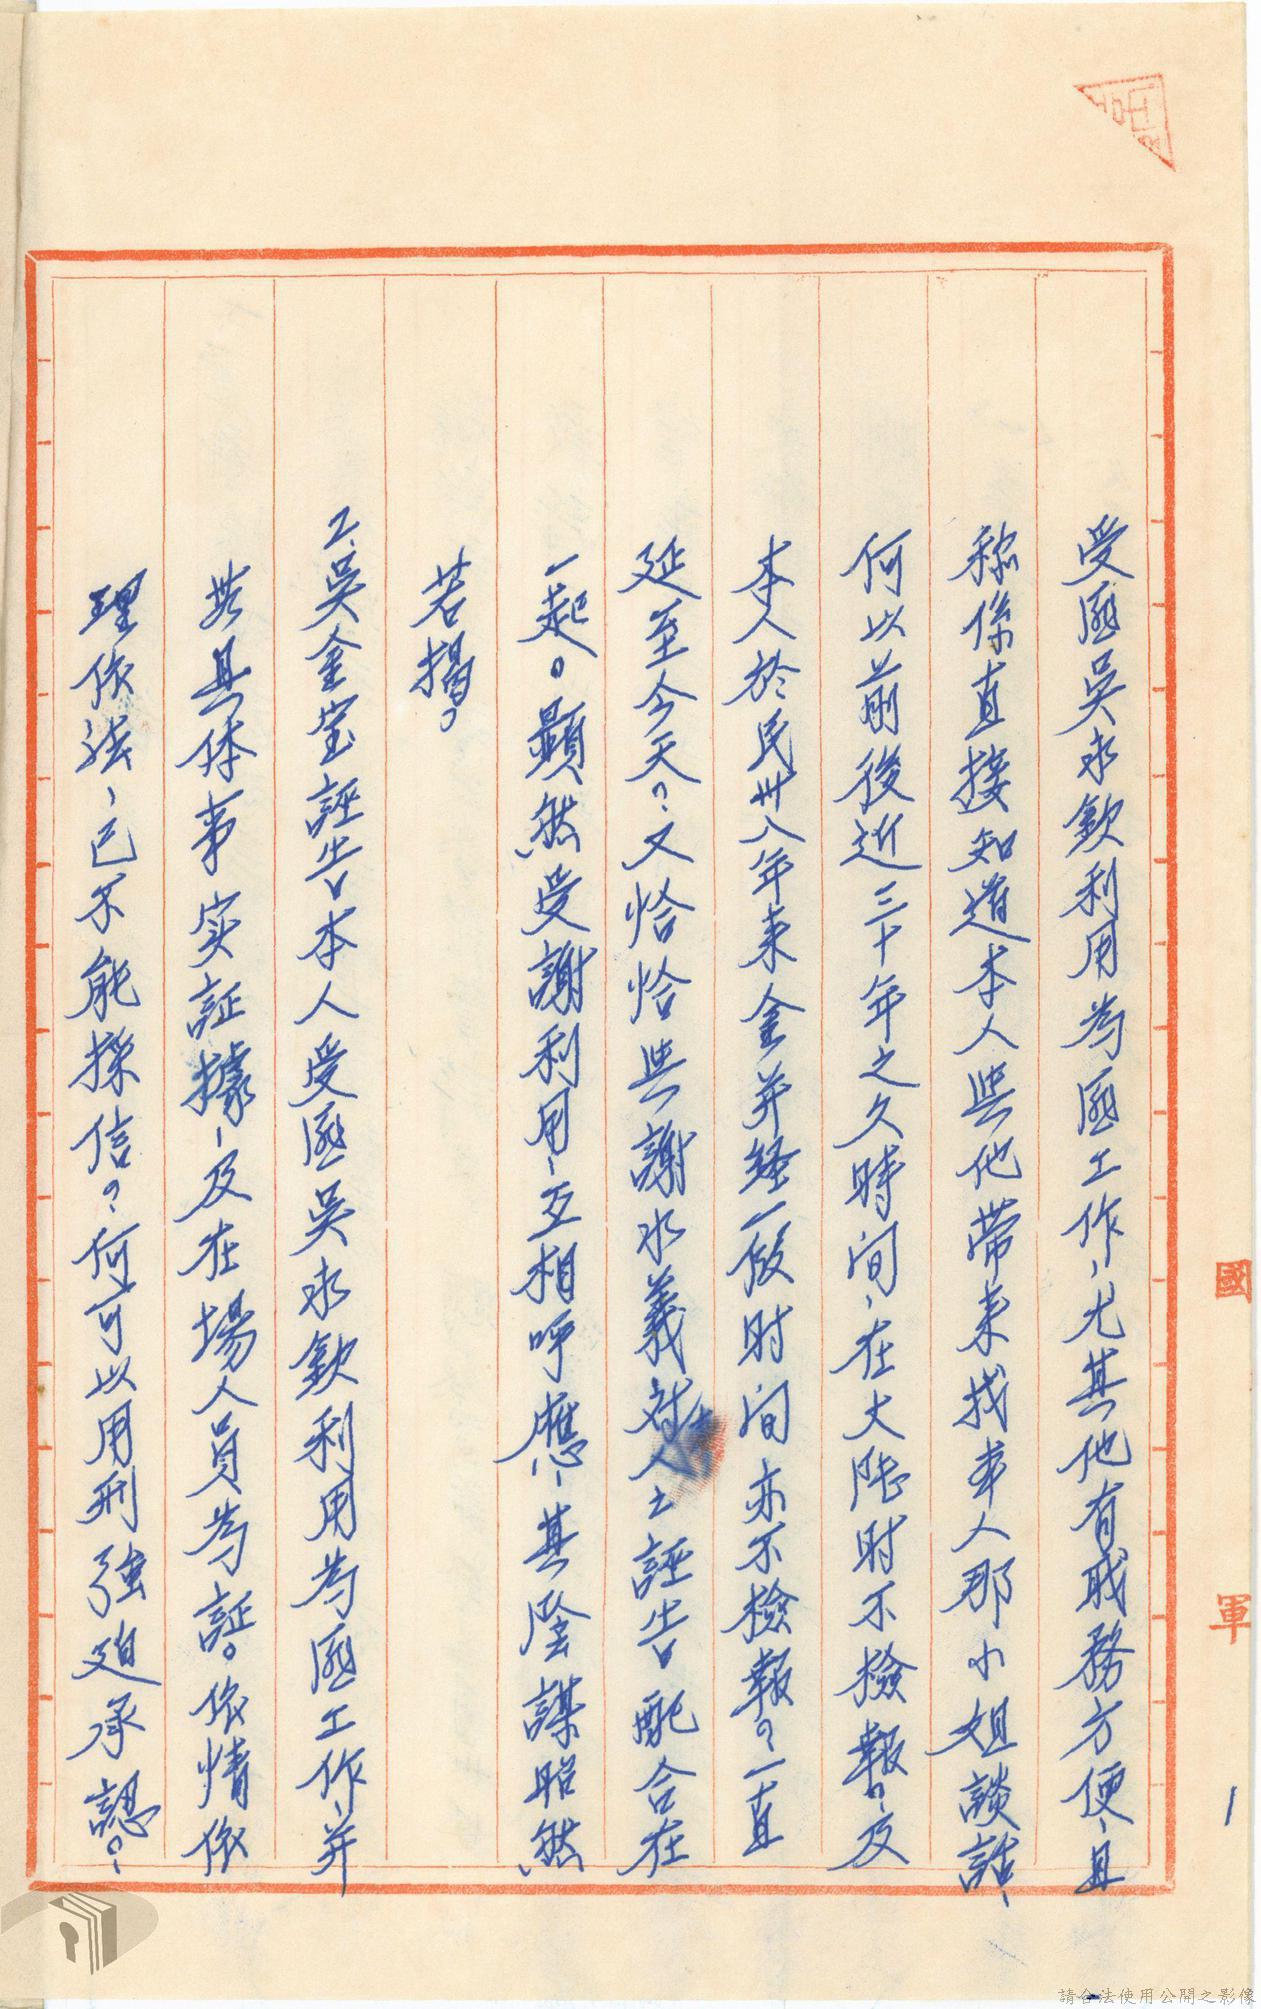 受匪吳永欽利用為匪工作，尤其他有戝務方便，且
称係直接知道本人與他帶来找本人那小姐談話，
何以前後近三十年之久時间，在大陸时不撿報？，及
本人於民卅八年来金并経一段时间亦不檢報？一直
延至今天？，又恰恰與謝水義对本人之誣告配合在
一起。顯然受謝利用，互相呼應，其陰謀昭然
若揭。
2.吳金宝誣告本人受匪吳永欽利用為匪工作，并
無具体事实証據，及在場人員為証。依情依
理依法，已不能採信？何可以用刑強廹承認？，
國
軍
請合法使用公開之影像